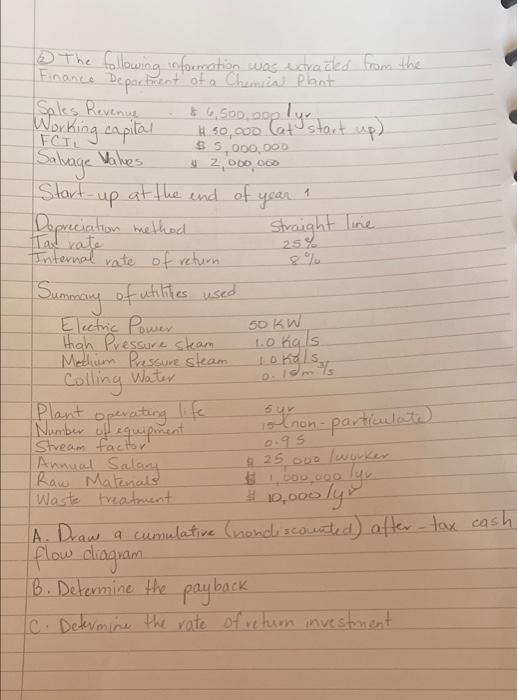 ② The following information was extracted from the
Finance Department of a Chemical Plant
Sales Revenue $ 6,500,000 /yr
Working capital # 50,000 (at start up)
FCIL $ 5,000,000
Salvage Values $ 2,000,000
Start-up at the end of year 1
Depreciation method Straight line
Tax rate 25%
Internal rate of return 8%
Summary of utilities used
Electric Power 50 KW
High Pressure steam 1.0 Kg/s
Medium Pressure steam 1.0 Kg/s
Colling Water m³/s
Plant operating life 5 yr
Number of equipment (non-particulate)
Stream factor 0.95
Annual Salary $ 25 000 /worker
Raw Materials $ 1,000,000 /yr
Waste treatment # 10,000/yr
A. Draw a cumulative (nondiscounted) after-tax cash
flow diagram
B. Determine the payback
C. Determine the rate of return investment